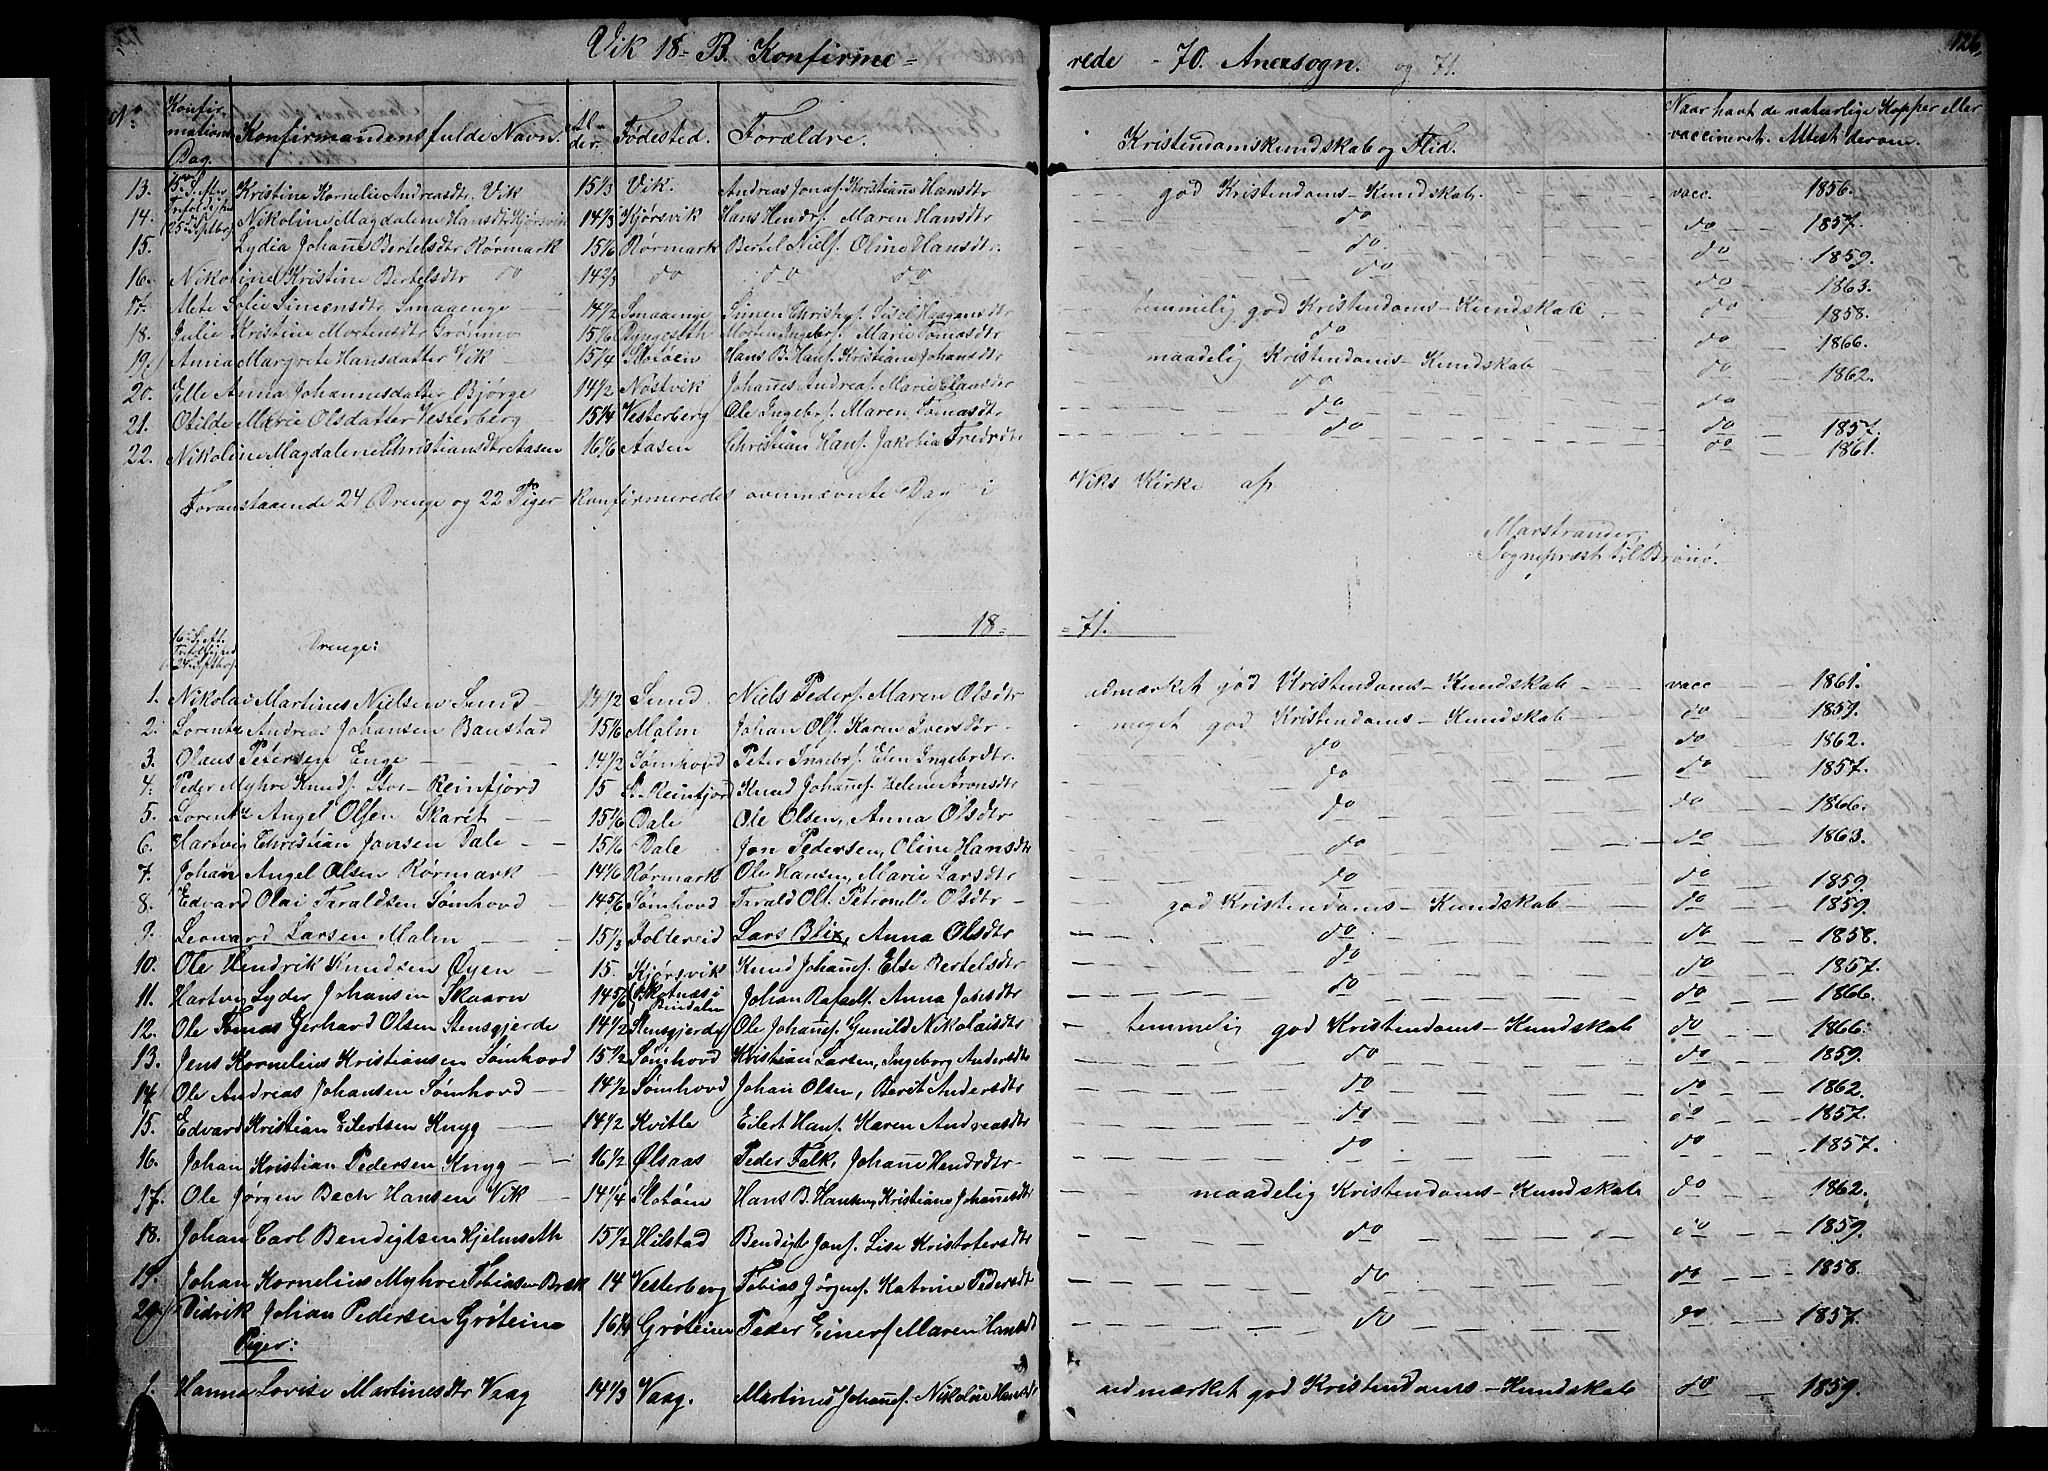 Vik 18= B. Konfirme= rede =70. Anexsogn. og 71. 126.
No Konfirmations Dag. Konfirmandens fulde Navn. Alder. Fødested. Forældre. Kristendomskundskab og Flid. Naar havt de naturlige Kopper eller vaccineret. Attest derom.
15de S. efter Trefoldighed 25de Septbr.
13. Kristine Kornelie Andreasdtr Vik 15 1/3 Vik. Andreas Jonas. Kristiane Hansdtr god Kristendoms-Kundskab vacc. 1856.
14. Nikoline Magdalene Hansdtr Kjørsvik 14 1/3 Kjørsvik Hans Hendr. Maren Hansdtr do do 1857.
15. Lydia Johanne Bertelsdtr Rørmark 15 1/6 Rørmark Bertel Niels. Oline Hansdtr. do do 1859.
16. Nikoline Kristine Bertelsdtr do 14 2/3 do do do do do 1863.
17. Mete Sofie Simensdtr Smaaenge 14 1/2 Smaaenge Simen Christ. Sisel Haagensdtr temmelig god Kristendoms-Kundskab do 1858.
18. Julie Kristine Mortensdtr Grønmo 15 1/6 Morten Ingebr. Marie Tomasdtr do do 1866.
19. Anna Margrete Hansdatter Vik 15 1/4 Slotøen Hans B. Hans. Kristiane Johansdtr maadelig Kristendoms-Kundskab do 1862.
20. Elle Anna Johannesdatter Bjørge 14 1/2 Nøstvik Johannes Andreas. Marie Klausdtr do do
21. Otilde Marie Olsdatter Vesterberg 15 1/4 Vesterberg Ole Ingebr. Maren Tomasdtr do do 1857.
22. Nikoline Magdalene Christiansdtr Aasen 16 1/6 Aasen Christian Hans. Jakobia Fredrdtr do do 1861.
Foranstaaende 24 Drenge og 22 Piger konfirmeredes ovennævnte Dag i Viks Kirke af
Marstrander,
Sognepræst til Brønø.
18= =71.
16de S. eft. Trefoldighed 24de Septbr. Drenge:
1. Nikolai Martines Nielsen Sund 14 1/2 Sund Niels Peders. Maren Olsdtr udmærket god Kristendoms-Kundskab vacc 1861.
2. Lorentz Andreas Johansen Baustad 15 1/6 Malm Johan Ols. Karen Iversdtr meget god Kristendoms-Kundskab do 1859.
3. Olaus Petersen Enge 14 1/2 Sømhovd Peter Ingebr. Elen Ingebrdtr. do do 1862.
4. Peder Myhre Knuds. Stor-Reinfjord 15 St. Reinfjord Knud Johannes. Helene Aronsdtr do do 1857.
5. Lorentz Angel Olsen Skaret 15 1/6 Dale Ole Olsen, Anna Olsdtr do do 1866.
6. Hartvig Christian Jonsen Dale 15 1/6 Dale Jon Pedersen, Oline Hansdtr do do 1863.
7. Johan Angel Olsen Rørmark 14 1/6 Rørmark Ole Hansen, Marie Larsdtr do do 1859.
8. Edvard Olai Taraldsen Sømhovd 14 5/6 Sømhovd Tarald Ols. Petronelle Olsdtr god Kristendoms-Kundskab do 1859.
9. Leonard Larsen Malm 15 1/3 Toltereid Lars Blix, Anna Olsdtr do do 1858.
10. Ole Hendrik Knudsen Øyen 15. Kjørsvik Knud Johannes. Else Bertelsdtr do do 1857.
11. Hartvig Lyder Johansen Skaarn 14 5/6 Skotnæs i Bindalen Johan Rafaels. Anna Jonsdtr do do 1866.
12. Ole Tomas Gerhard Olsen Stensgjerde 14 1/2 Stensgjerde Ole Johannes. Gunild Nikolaisdtr temmelig god Kristendoms-Kundskab do 1866.
13. Jens Kornelius Kristiansen Sømhovd 15 1/2 Sømhovd Kristian Larsen, Ingeborg Andersdtr do do 1859.
14. Ole Andreas Johansen Sømhovd 14 1/2 Sømhovd Johan Olsen, Berit Andersdtr do do 1862.
15. Edvard Kristian Eilertsen Knyg 14 1/2 Kvitle Eilert Hans. Karen Andreasdtr do do 1857.
16. Johan Kristian Pedersen Knyg 16 1/2 Ølsaas Peder Falk, Johanne Hendrdtr do do 1857.
17. Ole Jørgen Bech Hansen Vik 14 1/4 Slotøen Hans B. Hansen, Kristiane Johannesdtr maadelig Kristendoms-Kundskab do 1862.
18. Johan Carl Bendigtsen Hjelmseth 15 1/2 Hilstad Bendigt Jons. Lise Kristofersdtr do do 1859.
19. Johan Kornelius Myhre Tobiasen Bræk 14 Vesterberg Tobias Jørgens. Katrine Pedersdtr do do 1858.
20. Didrik Johan Pedersen Grøteine 16 1/4 Grøteinen Peder Einers. Maren Hansdtr do do 1857.
Piger:
1. Hanna Lovise Martinesdtr Vaag 14 1/3 Vaag. Martines Johannes. Nikoline Hansdtr udmærket god Kristendoms-Kundskab do 1859.